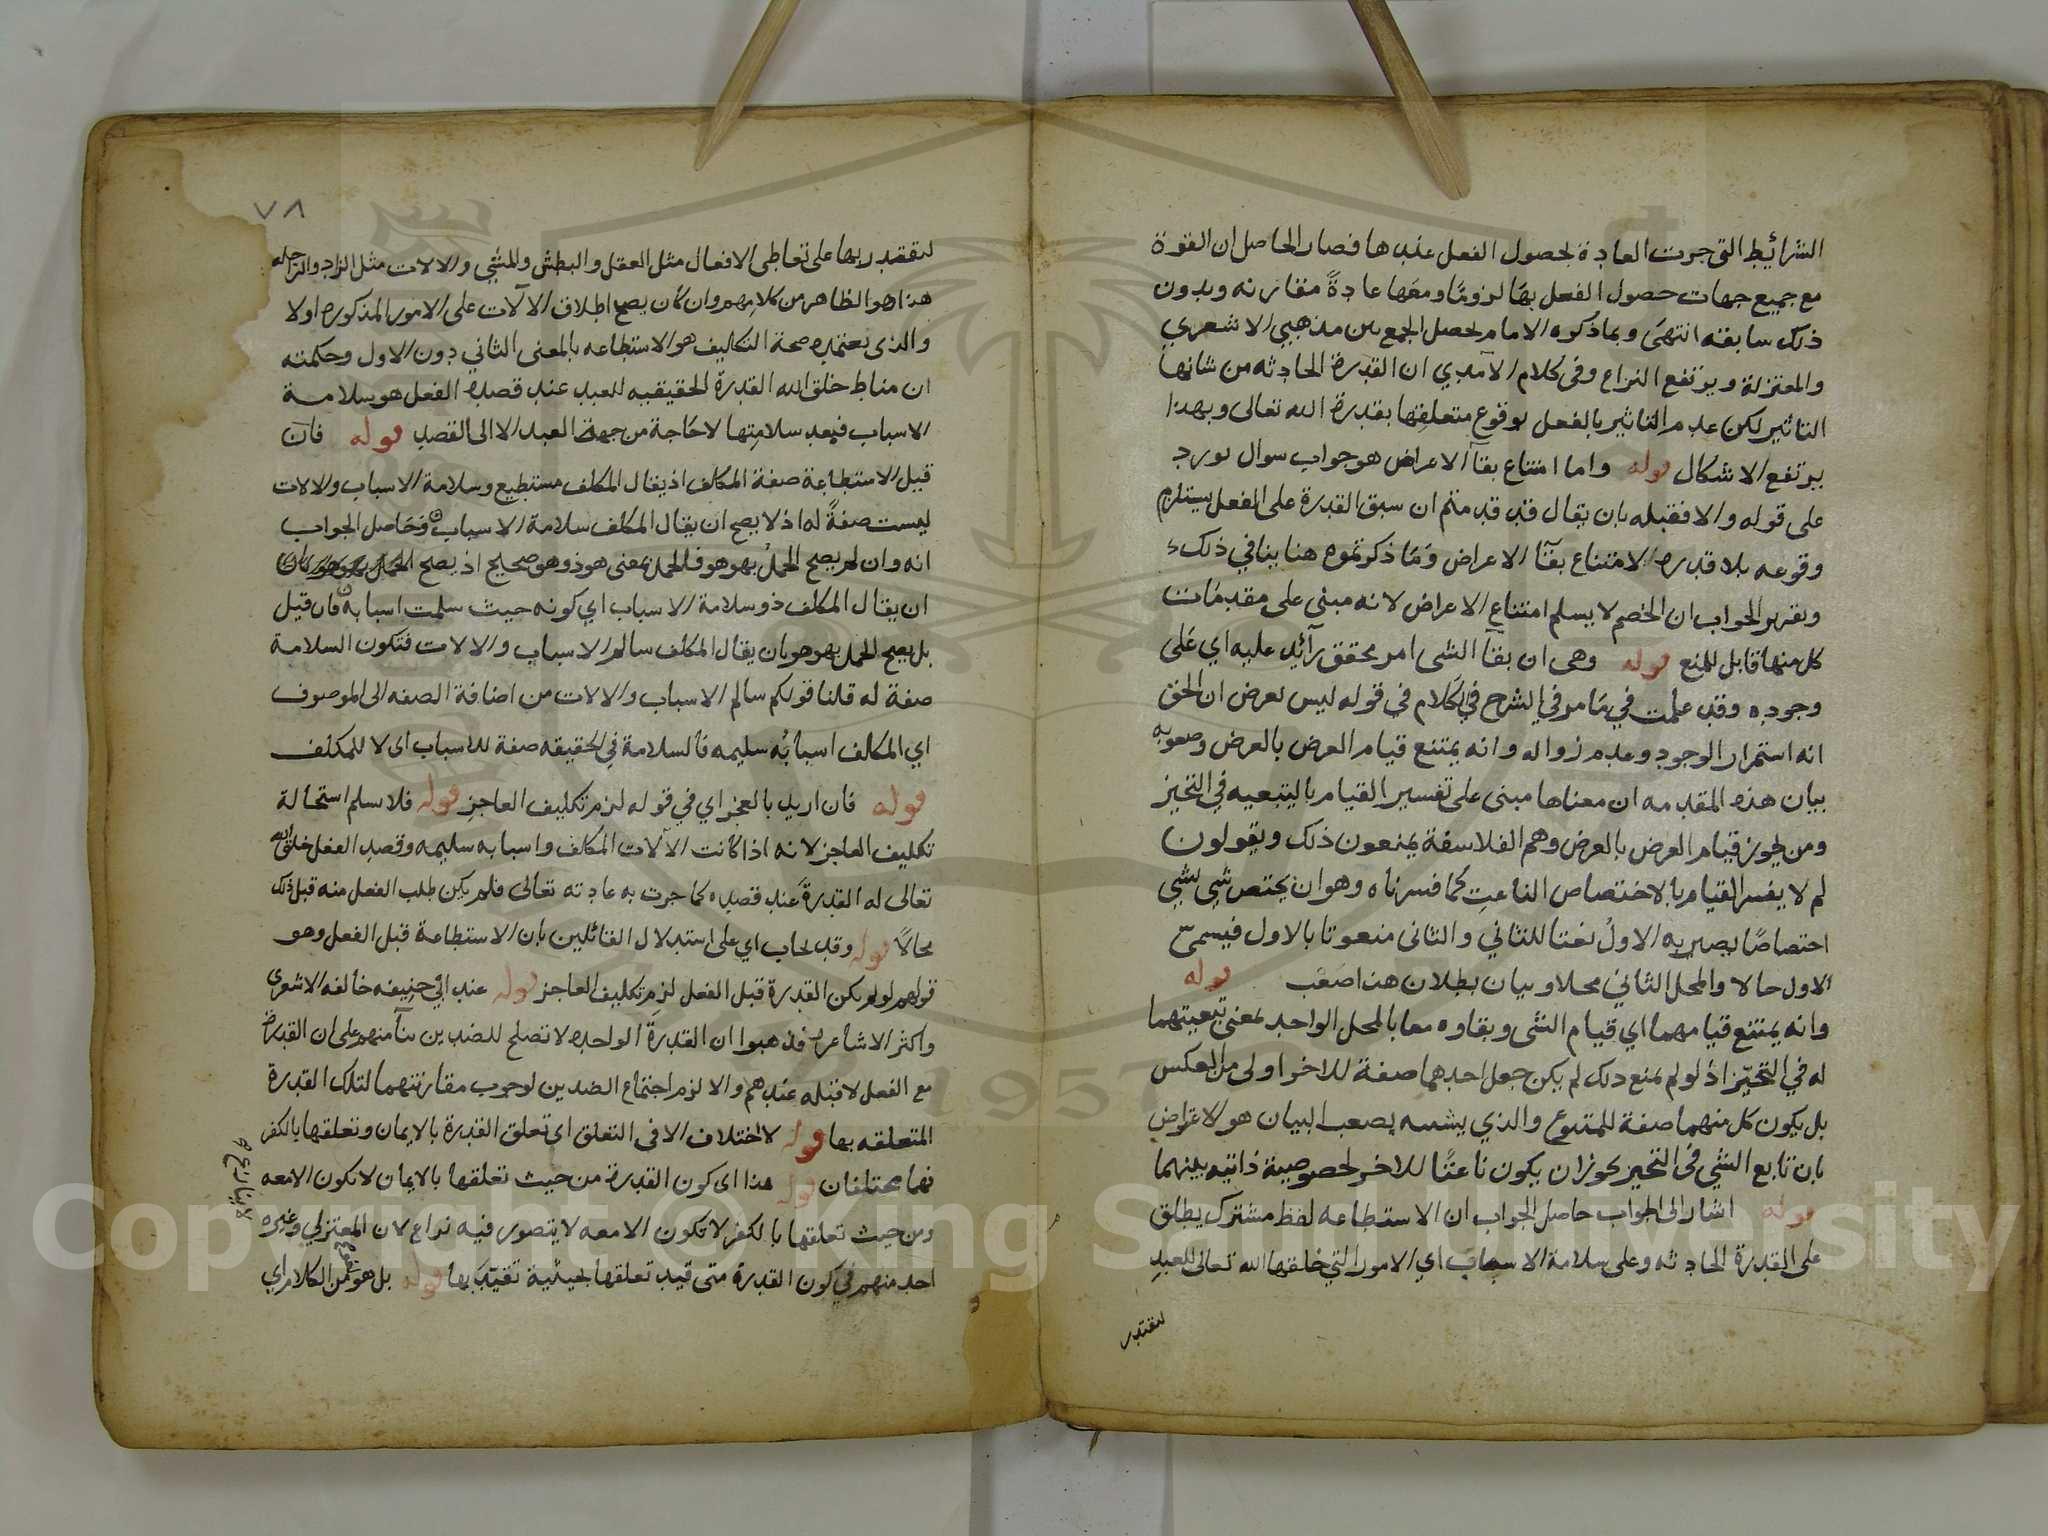 الشرائيط التي جرت العادة لحصول الفعل عندها فصار الحاصل ان القوة
مع جميع جهات حصول الفعل بها لزومًا ومعها عادةً مقارنه وبدون
ذلك سابقه انتهى وبما ذكره الامام لحصل الجمع بين مذهبي الاشعري
والمعتزلة ويرتفع النزاع وفى كلام الآمدي ان القدرة الحادثه من شانها
التاثير لكن عدم التاثير بالفعل لوقوع متعلقها بقدرة الله تعالى وبهذا
يرتفع الاشكال قوله واما امتناع بقآ الاعراض هو جواب سوال يورد
على قوله والا فقبله بان يقال قد قدمتم ان سبق القدرة على الفعل يستلزم
وقوعه بلا قدره لامتناع بقآ الاعراض وما ذكرتموه هنا ينافي ذلك
وتقرير الجواب ان الخصم لا يسلم امتناع الاعراض لانه مبني على مقدمات
كل منها قابل للمنع قوله وهى ان بقآ الشى امر محقق زآئد عليه اي على
وجوده وقد علمت في ما مر في الشرح في الكلام في قوله ليس بعرض ان الحق
انه استمرار الوجود وعدم زواله وانه يمتنع قيام العرض بالعرض وصعوبه
بيان هذه المقدمه ان معناها مبنى على تفسير القيام بالتبعيه في التحيز
ومن يجوز قيام العرض بالعرض وهم الفلاسفة يمنعون ذلك ويقولون
لم لا يفسر القيام بالاختصاص الناعت كما فسرناه وهو ان يختص شي بشي
اختصاصًا يصير به الاولُ نعتا للثاني والثانى منعوتا بالاول فيسمى
الاول حالا والمحل الثاني محلا وبيان بطلان هذا صَعْب قوله
وانه يمتنع قيامهما اي قيام الشى وبقاوه معا بالمحل الواحد بمعنى تبعيتهما
له في التحيّز اذ لو لم يمنع ذلك لم يكن جعل احدهما صفة للاخر اولى من العكس
بل يكون كل منهما صفة للمتبوع والذي يصعب البيان هو الاعتراض
بان تابع الشي فى التحيز يجوز ان يكون ناعتًا للاخر لخصوصية ذاتيه بينهما
قوله اشار الى الجواب حاصل الجواب ان الاستطاعه لفظ مشترك يطلق
على القدرة الحادثه وعلى سلامة الاسباب اي الامور التي خلقها الله تعالى للعبد
ليقتدر
٧٨
ليقتدر بها على تعاطى الافعال مثل العقل والبطش والمشي والالات مثل الزاد والراحله
هذا هو الظاهر من كلامهم وان كان يصح اطلاق الآلات على الامور المذكوره اولا
والذى يعتمده صحة التكليف هو الاستطاعه بالمعنى الثاني دون الاول وحكمته
ان مناط خلق الله القدرة الحقيقيه للعبد عند قصده الفعل هو سلامة
الاسباب فبعد سلامتها لا حاجة من جهة العبد الا الى القصد قوله فان
قيل الاستطاعة صفة المكلف اذ يقال المكلف مستطيع وسلامة الاسباب والالات
ليست صفةً له اذ لا يصح ان يقال المكلف سلامة الاسباب وحاصل الجواب
انه وان لم يصح الحملُ بهو هو فالحمل بمعنى هو ذو هو صحيح اذ يصح
ان يقال المكلف ذو سلامة الاسباب اي كونه حيث سلمت اسبابه فان قيل
بل يصح الحمل بهو هو بان يقال المكلف سالم الاسباب والالات فتكون السلامة
صفة له قلنا قولكم سالم الاسباب والالات من اضافة الصفه الى الموصوف
اي المكلف اسبابُه سليمه فالسلامة في الحقيقه صفة للاسباب اى لا للمكلف
قوله فان اريد بالعجز اي في قوله لزم تكليف العاجز قوله فلا نسلم استحالة
تكليف العاجز لانه اذا كانت الآلات المكلف واسبابه سليمه وقصد الفعل خلق الله
تعالى له القدرة عند قصده كما جرت به عادته تعالى فلم يكن طلب الفعل منه قبل ذلك
محالًا قوله وقد يجاب اي على استدلال القائلين بان الاستطاعة قبل الفعل وهو
قولهم لو لم يكن القدرة قبل الفعل لزم تكليف العاجز قوله عند ابي حنيفه خالفه الاشعرى
واكثر الاشاعره فذهبوا ان القدرة الواحده لا تصلح للضدين بنآ منهم على ان القدرة
مع الفعل لا قبله عندهم والا لزم اجتماع الضدين لوجوب مقارنتهما لتلك القدرة
المتعلقه بها قوله لا اختلاف الا فى التعلق اى تعلق القدرة بالايمان وتعلقها بالكفر
فهما مختلفان قوله هذا اى كون القدرة من حيث تعلقها بالايمان لا تكون الا معه
ومن حيث تعلقها بالكفر لا تكون الا معه لا يتصور فيه نزاع لان المعتزلي وغيره
احد منهم في كون القدرة متى قيد تعلقها بحيثية تقيّد بها قوله بل هو من الكلام اي
لا ينازع